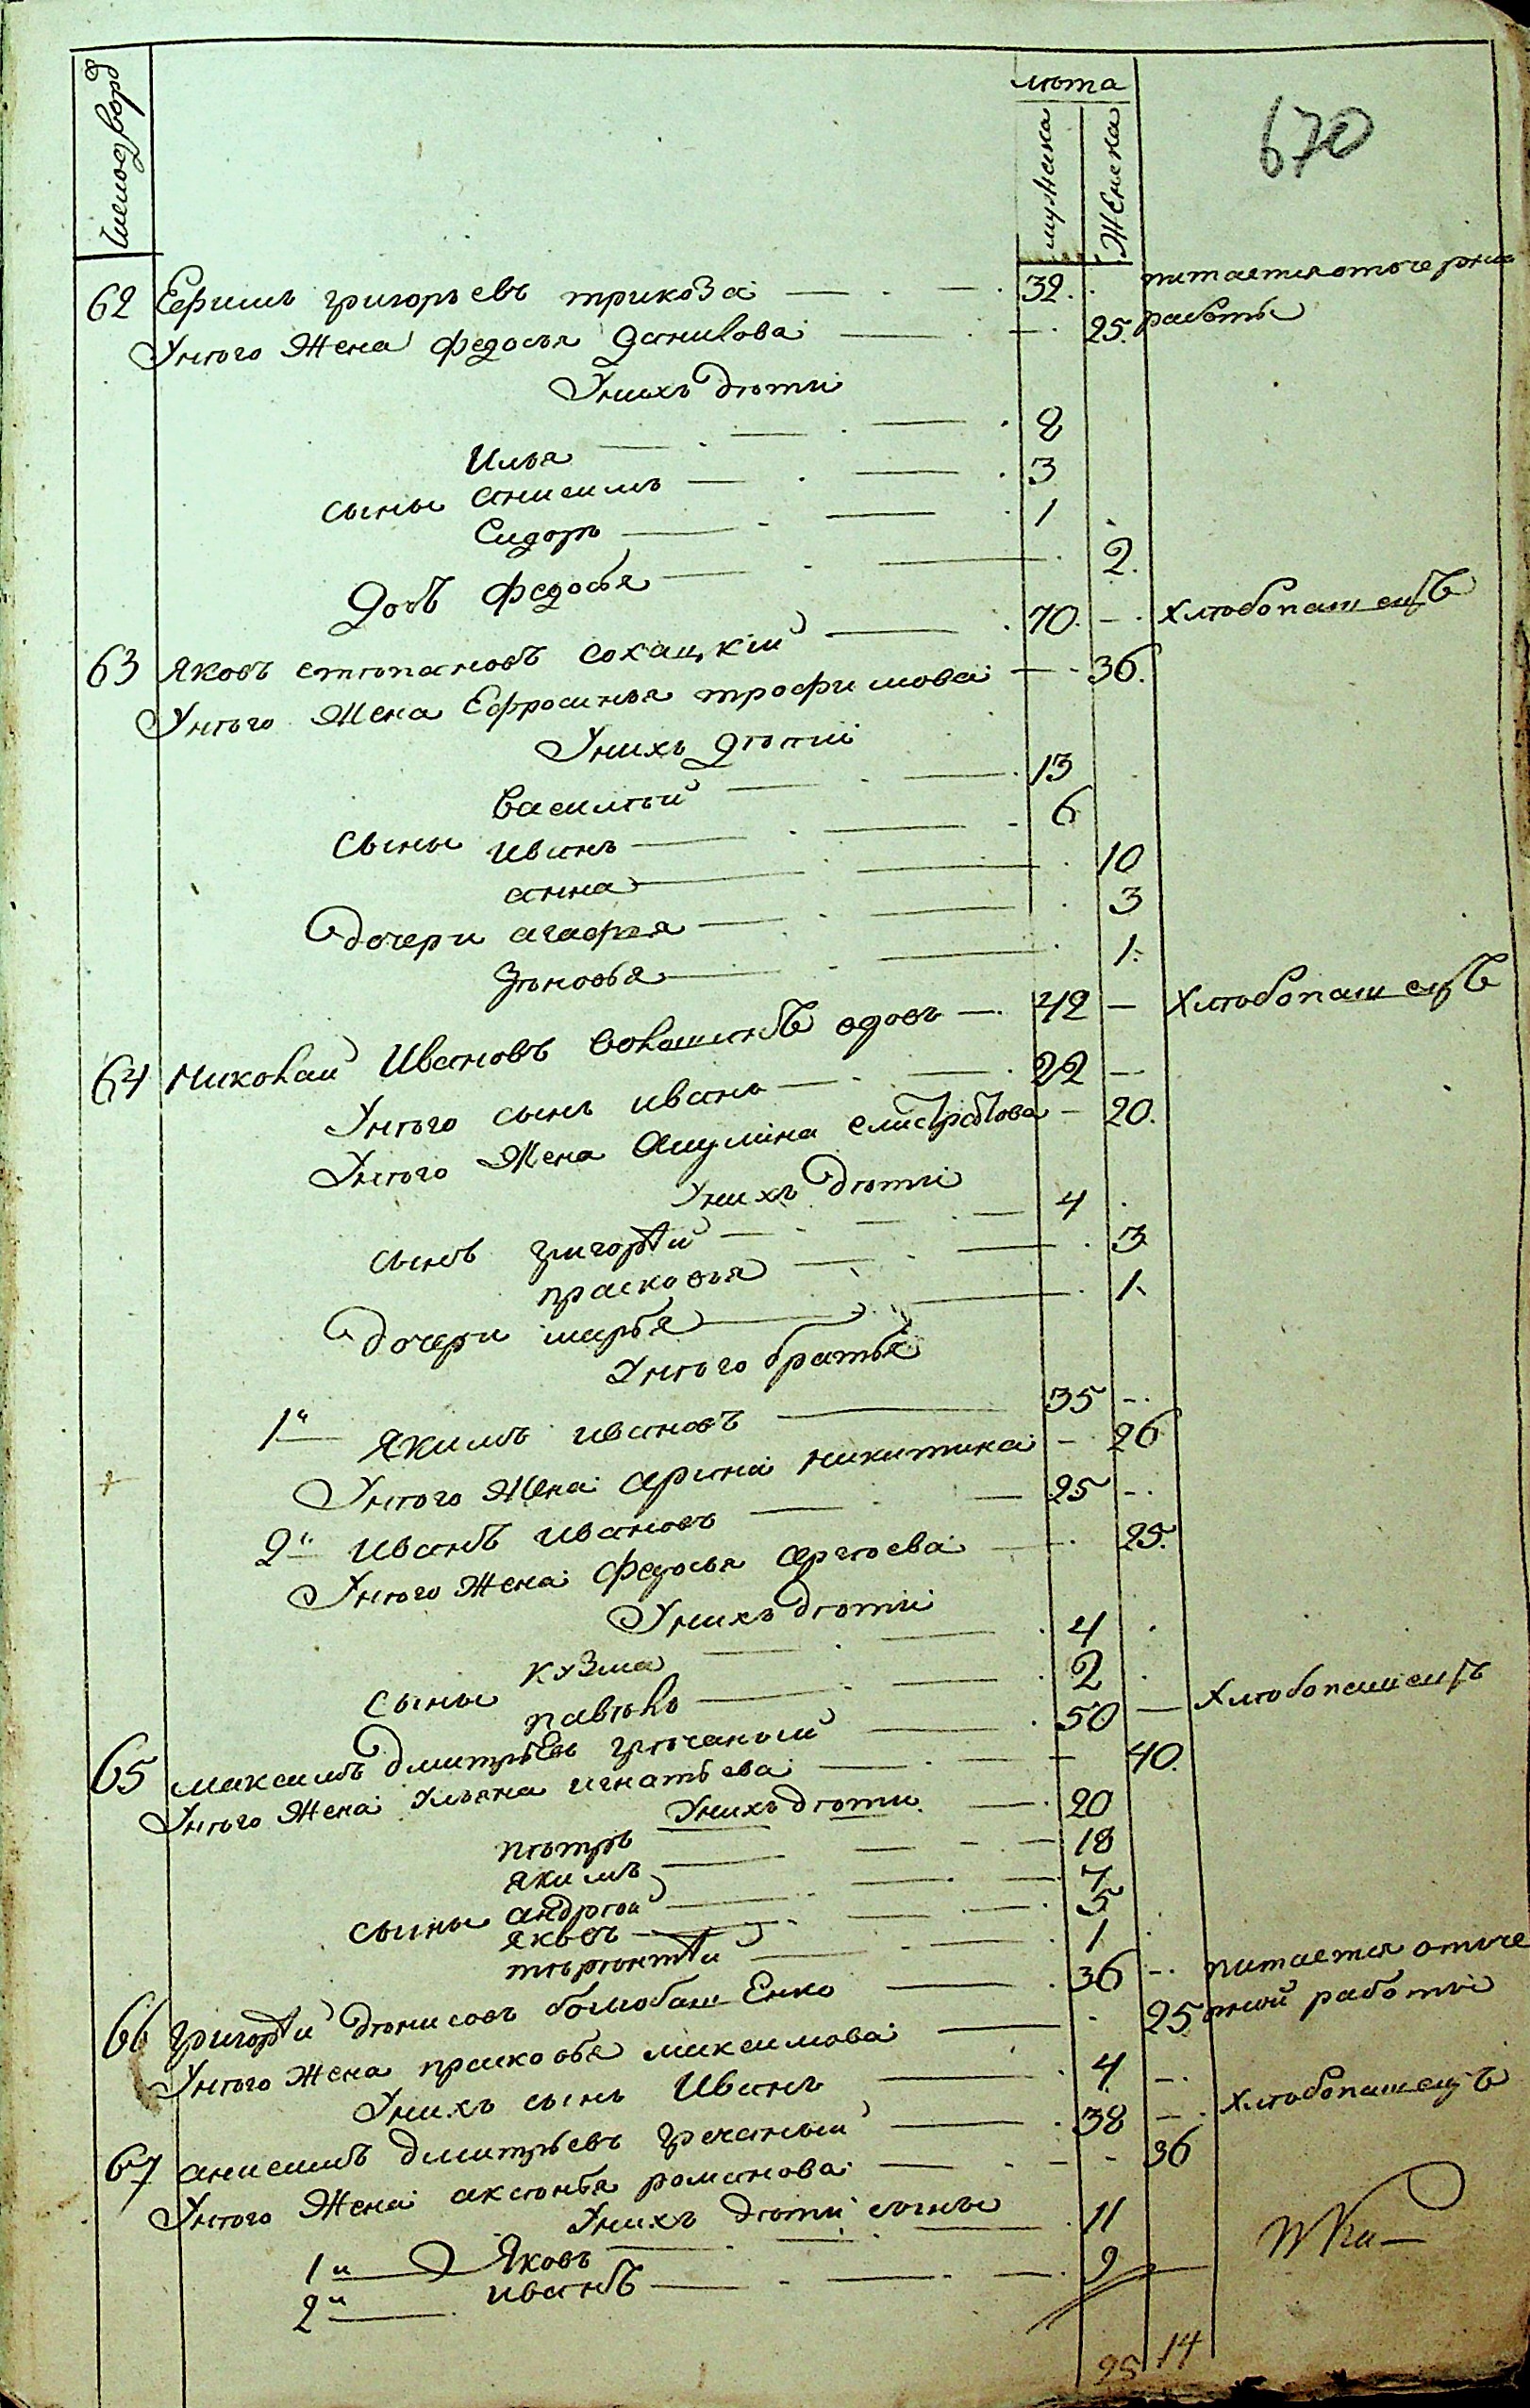 670
число двор
лѣта
мужска
женска
62 Ефимъ григорьевъ трикоза 32. питается отъ черни
Унѣго жена федосья данилова 25. работы
Унихъ дѣти
Илья 8
сыны анисимъ 3
Сидоръ 1
дочь федосья 2.
63 яковъ стѣпановъ сохацкій 70. хлѣбопашецъ
Унѣго жена Ефросинья трофимова 36.
Унихъ дѣти
василѣй 13
сыны иванъ 6
анна 10
дочери агафья 3
зѣновья 1.
64 николай Ивановъ волошинъ вдовъ 42 хлѣбопашецъ
Унѣго сынъ иванъ 22
Унѣго жена акулина елистратова 20.
Унихъ дѣти
сынъ григорѣй 4
прасковья 3
дочери марья 1.
Унѣго братья
1й якимъ ивановъ 35
Унѣго жена арина никитина 26
2й иванъ ивановъ 25
Унѣго жена федосья сергѣева 25.
Унихъ дѣти
кузма 4
сыны павѣлъ 2
65 максимъ дмитрьевъ гречаный 50 хлѣбопашецъ
Унѣго жена ульяна игнатьева 40.
Унихъ дѣти
пѣтръ 20
якимъ 18
сыны андрѣй 7
яковъ 5
тѣрѣнтѣй 1
66 григорѣй дѣнисовъ 36 питается отъ че
Унѣго жена прасковья максимова 25 рной работы
Унихъ сынъ Иванъ 4
67 анисимъ дмитрьевъ гречаный 38 хлѣбопашецъ
Унѣго жена аксѣнья романова 36
Унихъ дѣти сыны
1й Яковъ 11
2й иванъ 9
25 14